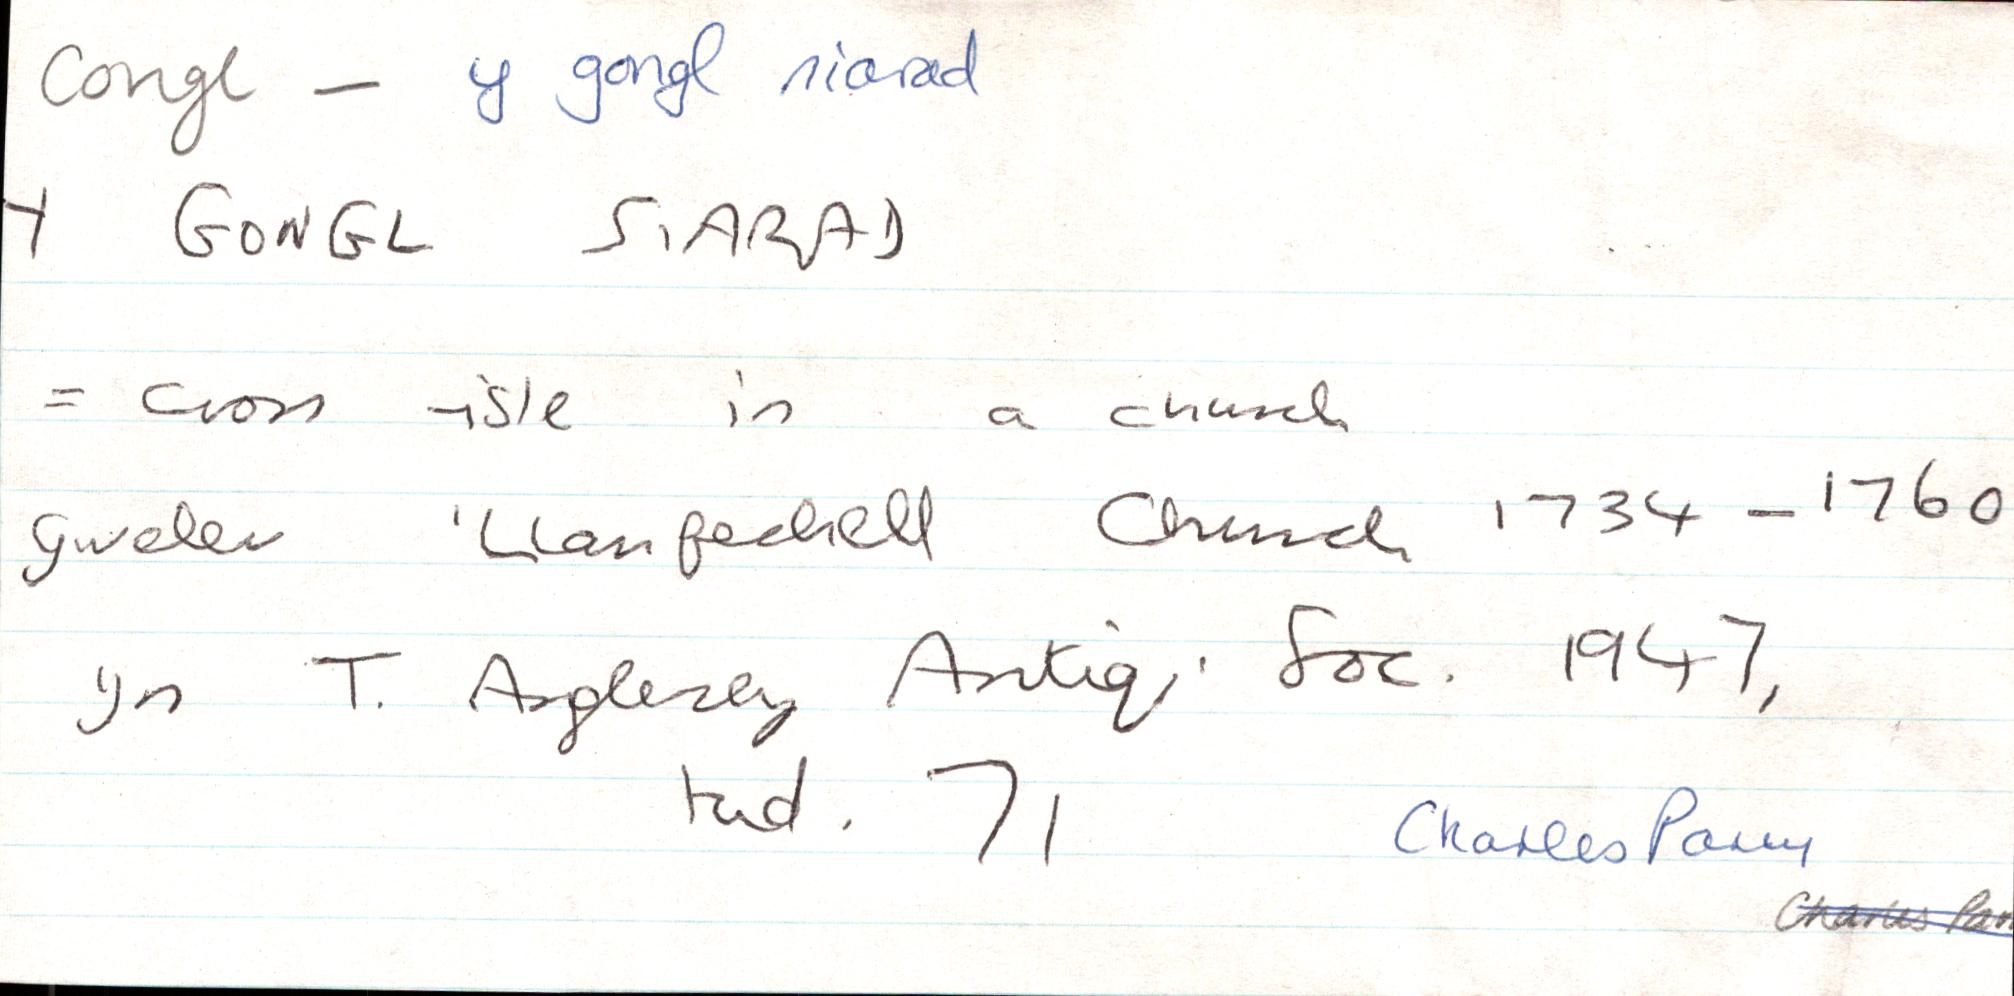 Congl — y gongl siarad
Y GONGL SIARAD
= cross-isle in a church
gweler 'Llanfechell Church 1734-1760
yn T. Anglesey Antiq. Soc. 1947,
tud. 71
Charles Parry
Charles Par